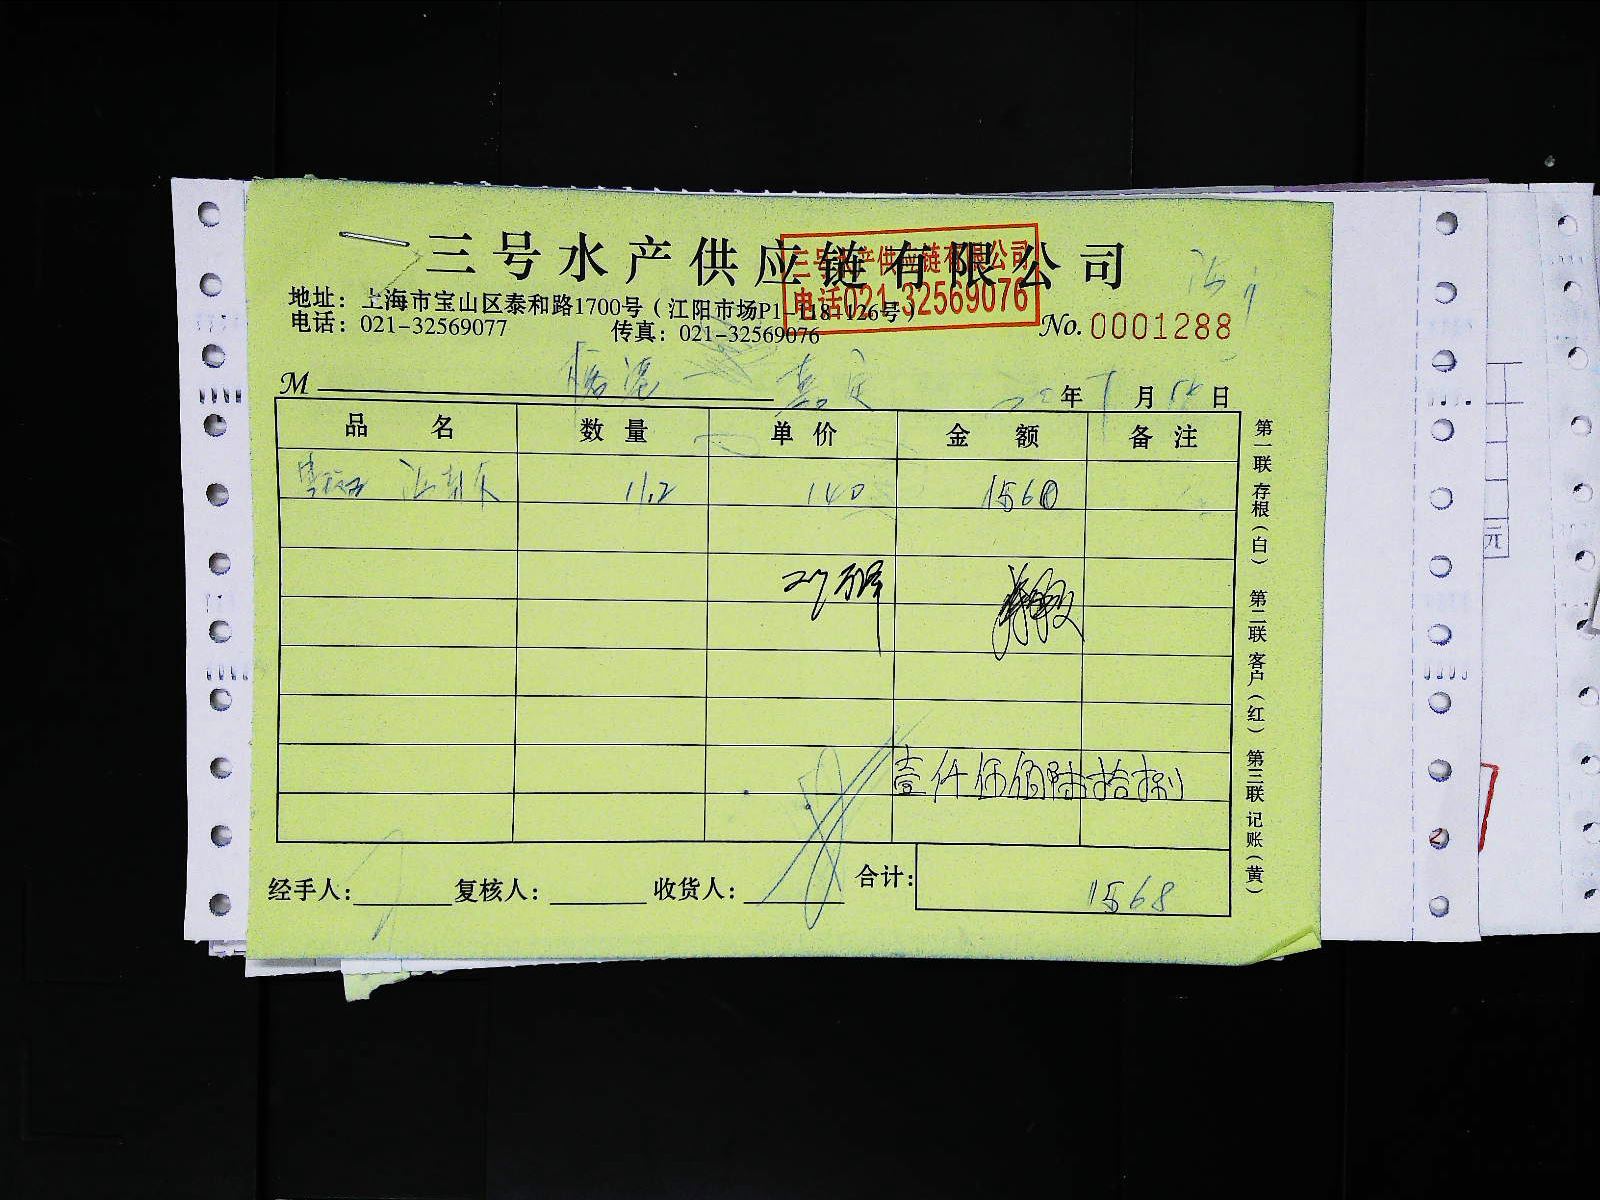 三号水产供应链有限公司
三号水产供应链有限公司
电话021-32569076
地址：上海市宝山区泰和路1700号（江阳市场P1-118-126号）
电话：021-32569077 传真：021-32569076
No. 0001288
M 嘉定 年 月 日
品名 数量 单价 金额 备注
11.2 140 1560
壹仟伍佰陆拾捌
经手人： 复核人： 收货人： 合计： 1568
第一联 存根（白） 第二联 客户（红） 第三联 记账（黄）
元